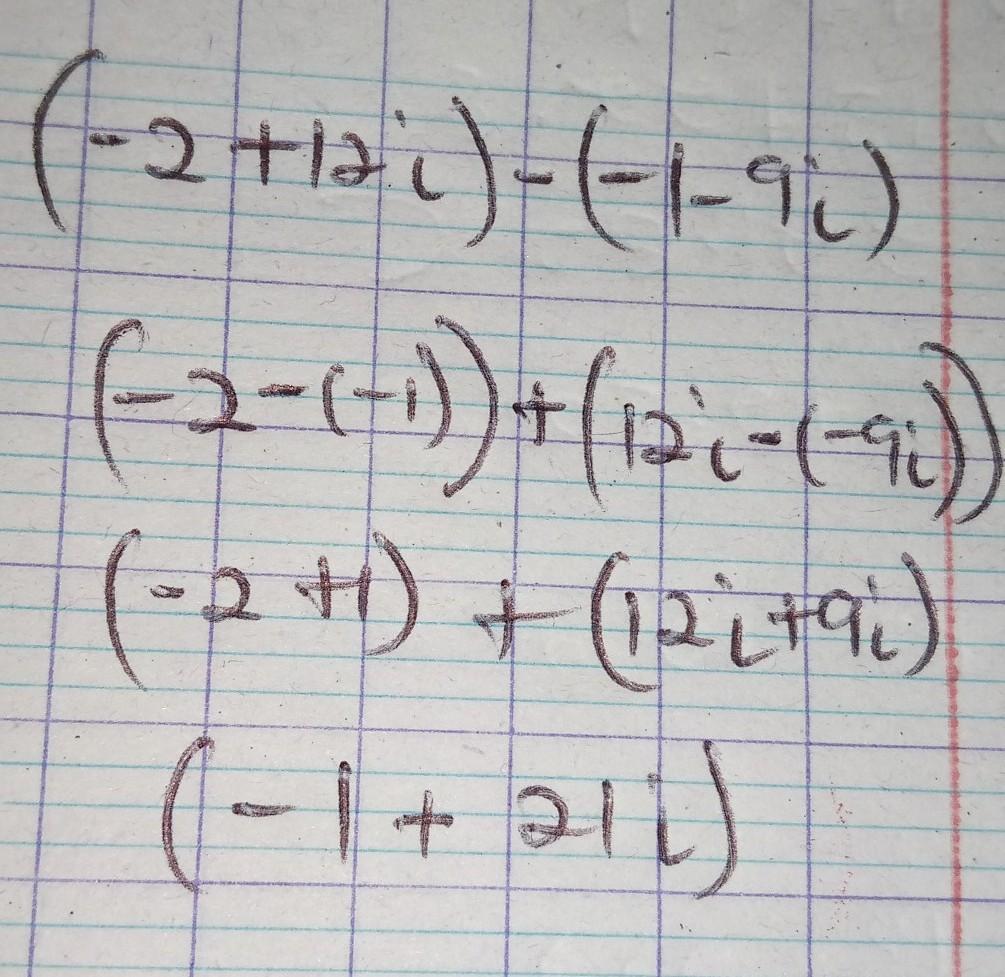 (-2+12i)-(-1-9i)
(-2-(-1))+(12i-(-9i))
(-2+1)+(12i+9i)
(-1+21i)